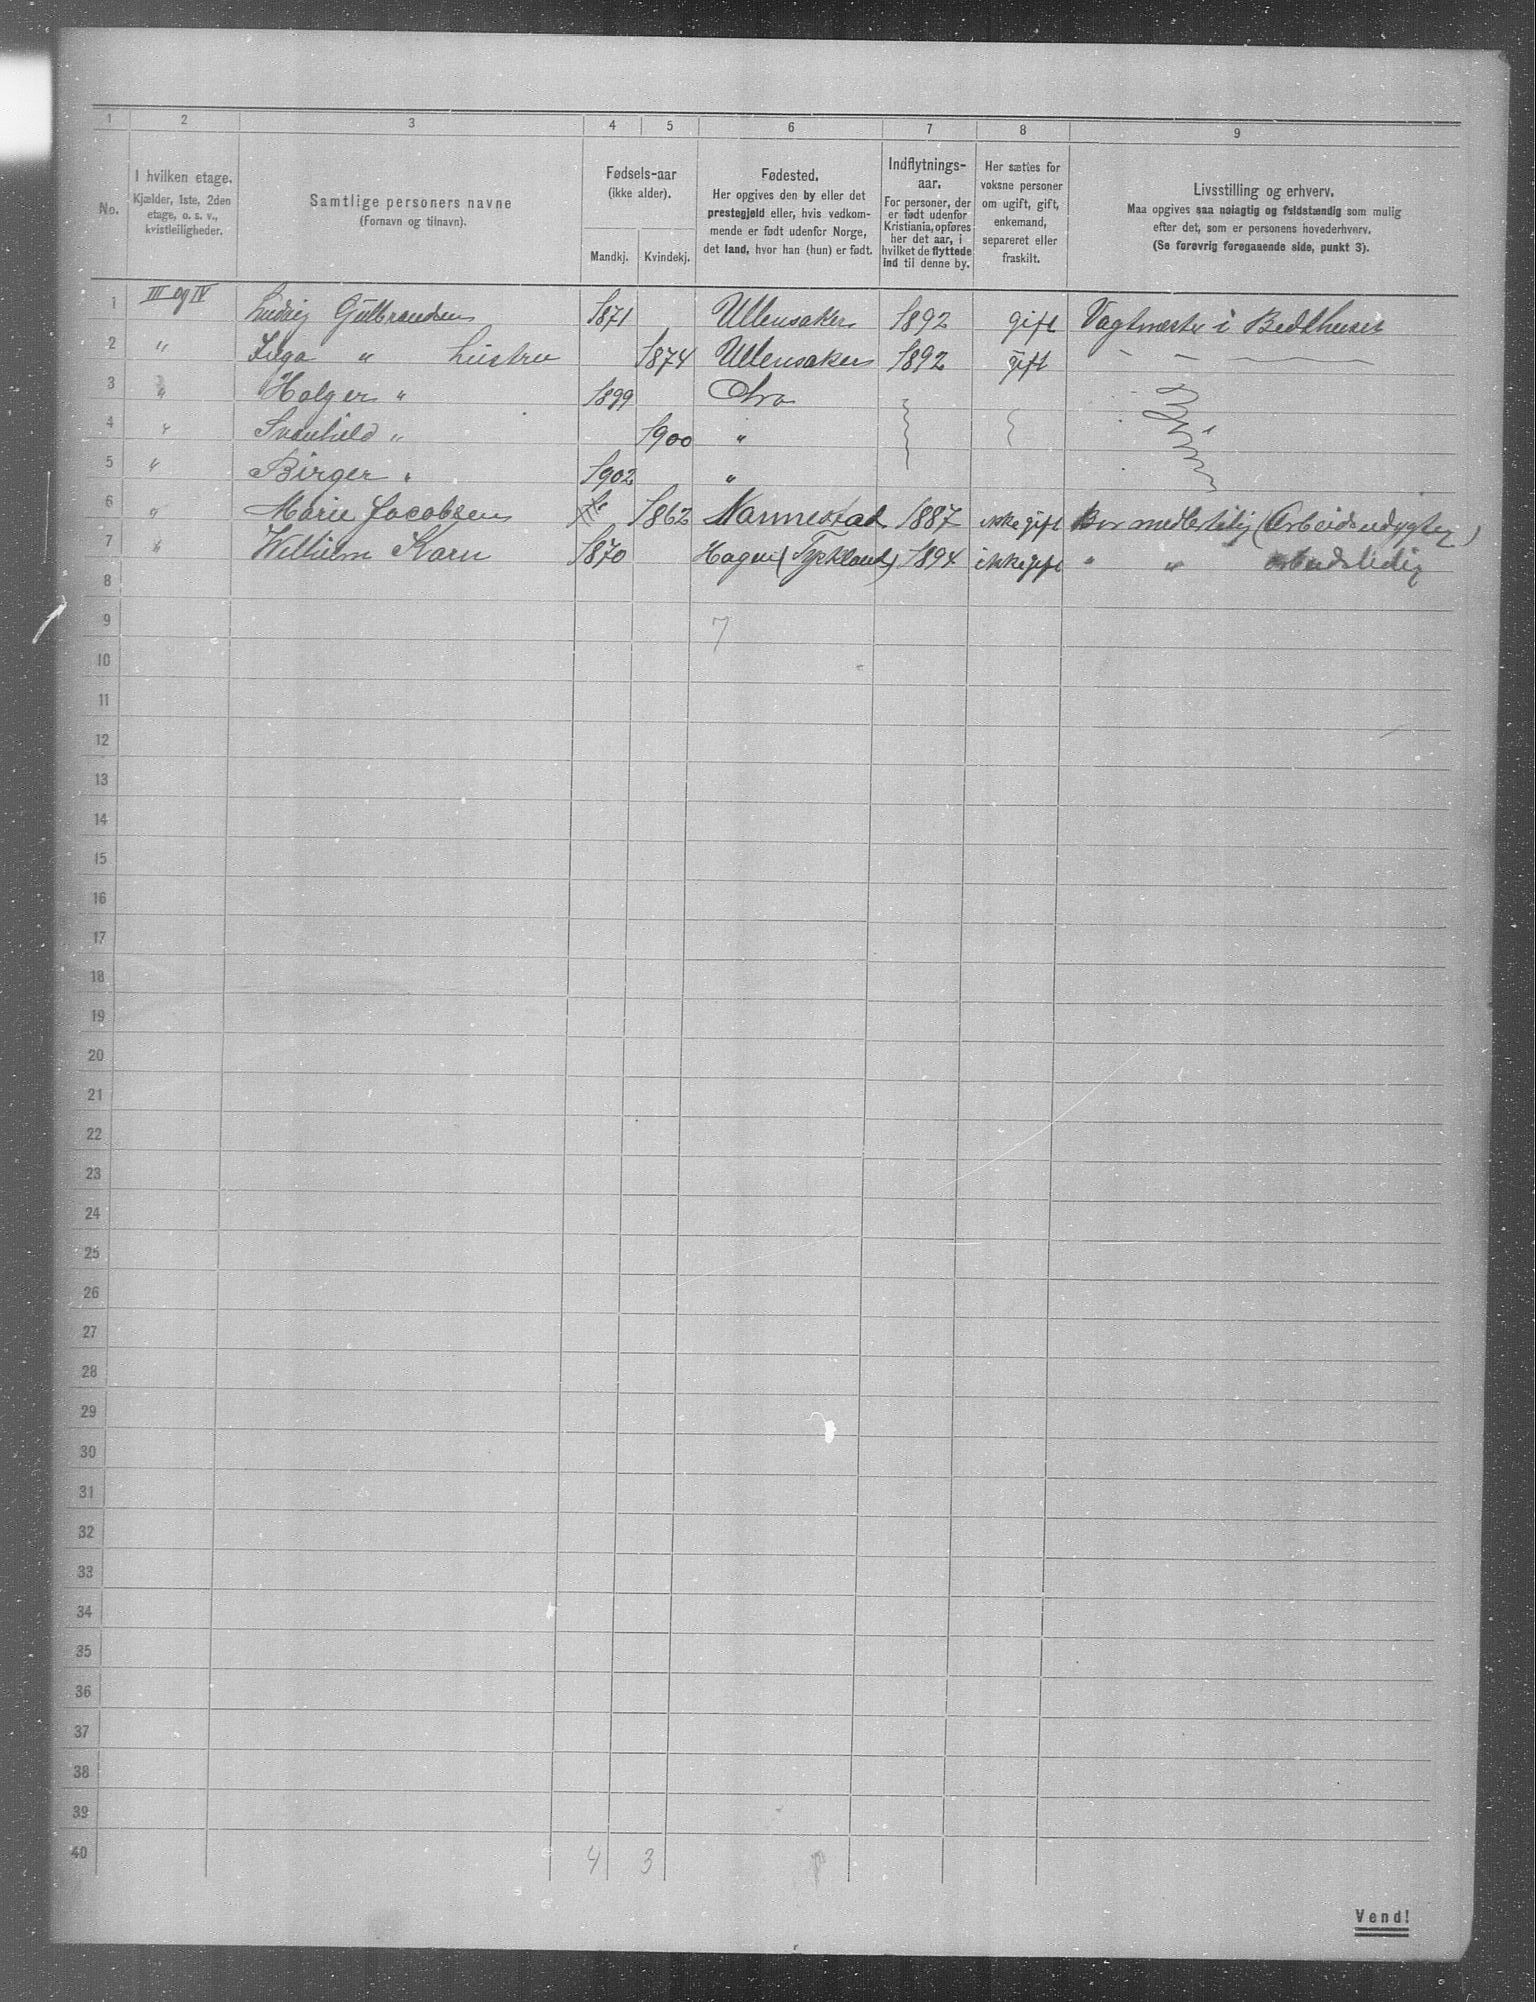 1 2 3 4 5 6 7 8 9
No.
I hvilken etage.
Kjælder, 1ste, 2den
etage, o. s. v.,
kvistleiligheder.
Samtlige personers navne
(Fornavn og tilnavn).
Fødsels-aar
(ikke alder).
Mandkj. Kvindekj.
Fødested.
Her opgives den by eller det
prestegjeld eller, hvis vedkom-
mende er født udenfor Norge,
det land, hvor han (hun) er født.
Indflytnings-
aar.
For personer, der
er født udenfor
Kristiania, opføres
her det aar, i
hvilket de flyttede
ind til denne by.
Her sættes for
voksne personer
om ugift, gift,
enkemand,
separeret eller
fraskilt.
Livsstilling og erhverv.
Maa opgives saa nøiagtig og fuldstændig som mulig
efter det, som er personens hovederhverv.
(Se forøvrig foregaaende side, punkt 3).
1 III og IV Ludvig Gulbrandsen 1871 Ullensaker 1892 gift i
2 " " Hustru 1874 Ullensaker 1892 gift — — —
3 " Holger " 1899
4 " Svanhild " 1900 "
5 " Birger " 1902 "
6 " Marie Jacobsen 1862 Nannestad 1887 ikke gift
7 " William Karn 1870 (Tyskland) 1894 ikke gift " " arbeidsledig
8
9 7
10
11
12
13
14
15
16
17
18
19
20
21
22
23
24
25
26
27
28
29
30
31
32
33
34
35
36
37
38
39
40 4 3
Vend!